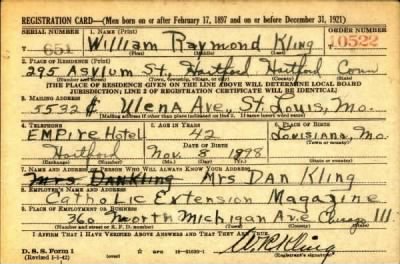 REGISTRATION CARD—(Men born on or after February 17, 1897 and on or before December 31, 1921)
SERIAL NUMBER 1. NAME (Print) ORDER NUMBER
V 651 William Raymond Kling 10522
(First) (Middle) (Last)
2. PLACE OF RESIDENCE (Print)
295 Asylum St. Htford Hartford Conn
(Number and street) (Town, township, village, or city) (County) (State)
[THE PLACE OF RESIDENCE GIVEN ON THE LINE ABOVE WILL DETERMINE LOCAL BOARD
JURISDICTION; LINE 2 OF REGISTRATION CERTIFICATE WILL BE IDENTICAL]
3. MAILING ADDRESS
5532 Ulena Ave, St. Louis, Mo.
[Mailing address if other than place indicated on line 2. If same insert word same]
4. TELEPHONE 5. AGE IN YEARS 6. PLACE OF BIRTH
EMPIre Hotel 42 Louisiana, Mo.
DATE OF BIRTH (Town or county)
Hartford Nov. 8 1898
(Exchange) (Number) (Mo.) (Day) (Yr.) (State or country)
7. NAME AND ADDRESS OF PERSON WHO WILL ALWAYS KNOW YOUR ADDRESS
Mrs Dan Kling Mrs Dan Kling
8. EMPLOYER'S NAME AND ADDRESS
Catholic Extension Magazine
9. PLACE OF EMPLOYMENT OR BUSINESS
360 North Michigan Ave Chicago Ill.
(Number and street or R. F. D. number) (Town) (County) (State)
I AFFIRM THAT I HAVE VERIFIED ABOVE ANSWERS AND THAT THEY ARE TRUE.
D. S. S. Form 1
(Revised 1-1-42) 16—21630-1 W R Kling
(Registrant's signature)